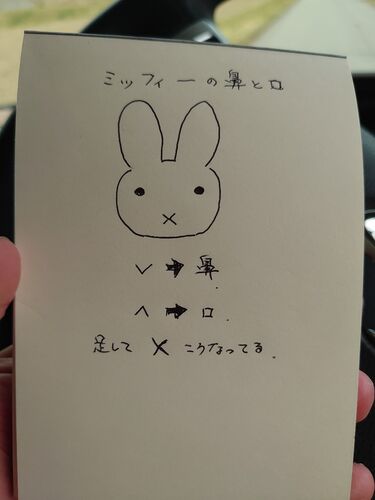 ミッフィーの鼻と口
∨ → 鼻.
∧ → 口.
足して × こうなってる.